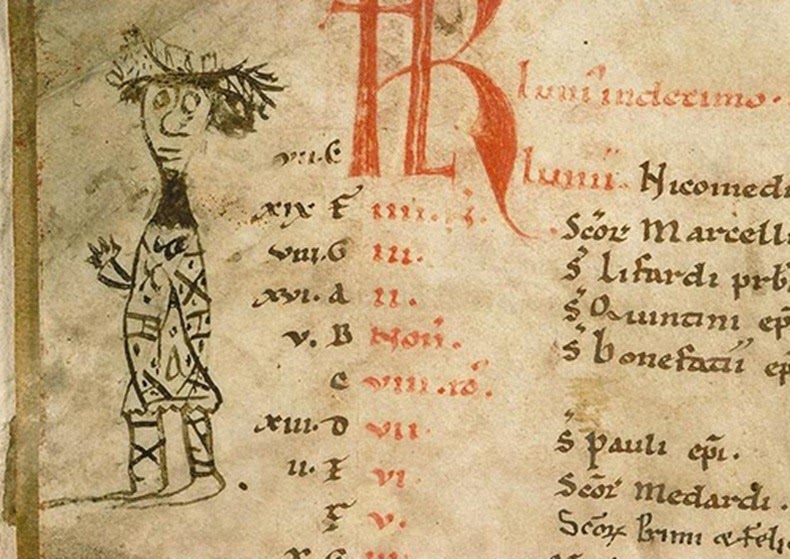 KL
Iunii
vii. E Iunii. Nicomedi
xix F iiii. Scōr Marcelli
viii. G iii. S Lifardi prb
xvi. A ii. S Quintini ep
v. B Non. S bonefacii ep
c viii. id.
xiii. D vii S Pauli epi.
ii. E vi Scōr Medardi.
F v. Scōr Primi & feli